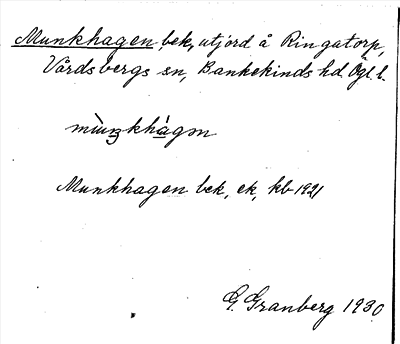 Munkhagen bek, utjord å Ringatorp,
Vårdsbergs sn, Bankekinds hd. Ögl. l.
mùŋkhàgən
Munkhagen bek, ek, kb 1921
G. Granberg 1930